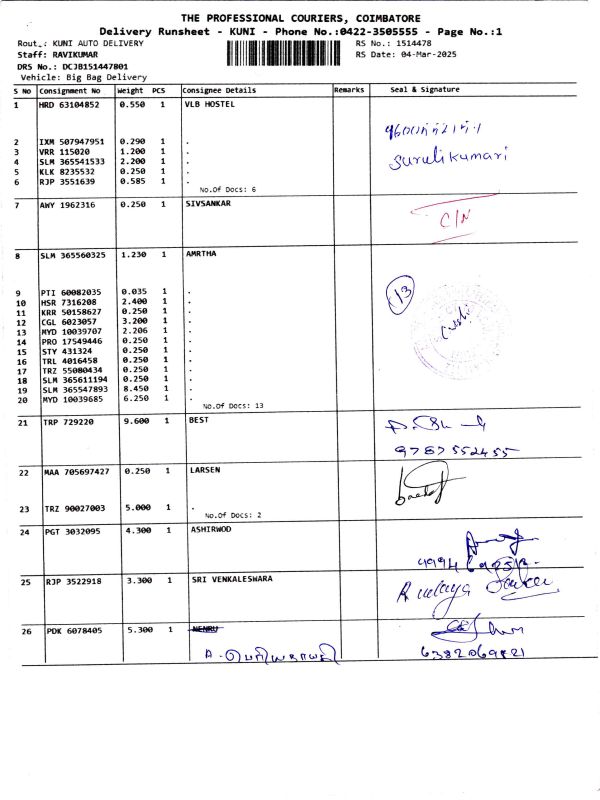 THE PROFESSIONAL COURIERS, COIMBATORE
Delivery Runsheet - KUNI - Phone No.:0422-3505555 - Page No.:1
Rout_: KUNI AUTO DELIVERY RS No.: 1514478
Staff: RAVIKUMAR RS Date: 04-Mar-2025
DRS No.: DCJB151447801
Vehicle: Big Bag Delivery
S No Consignment No Weight PCS Consignee Details Remarks Seal & Signature
1 HRD 63104852 0.550 1 VLB HOSTEL
2 IXM 507947951 0.290 1 .
3 VRR 115020 1.200 1 .
4 SLM 365541533 2.200 1 .
Surulikumari
5 KLK 8235532 0.250 1 .
6 RJP 3551639 0.585 1 .
No.Of Docs: 6
7 AWY 1962316 0.250 1 SIVSANKAR
C/N
8 SLM 365560325 1.230 1 AMRTHA
9 PTI 60082035 0.035 1 .
13
10 HSR 7316208 2.400 1 .
11 KRR 50158627 0.250 1 .
12 CGL 6023057 3.200 1 .
13 MYD 10039707 2.206 1 .
14 PRO 17549446 0.250 1 .
15 STY 431324 0.250 1 .
16 TRL 4016458 0.250 1 .
17 TRZ 55080434 0.250 1 .
18 SLM 365611194 0.250 1 .
19 SLM 365547893 8.450 1 .
20 MYD 10039685 6.250 1 .
No.Of Docs: 13
21 TRP 729220 9.600 1 BEST
9787552455
22 MAA 705697427 0.250 1 LARSEN
23 TRZ 90027003 5.000 1 .
No.Of Docs: 2
24 PGT 3032095 4.300 1 ASHIRWOD
25 RJP 3522918 3.300 1 SRI VENKALESWARA
26 PDK 6078405 5.300 1 NEHRU
6382069821